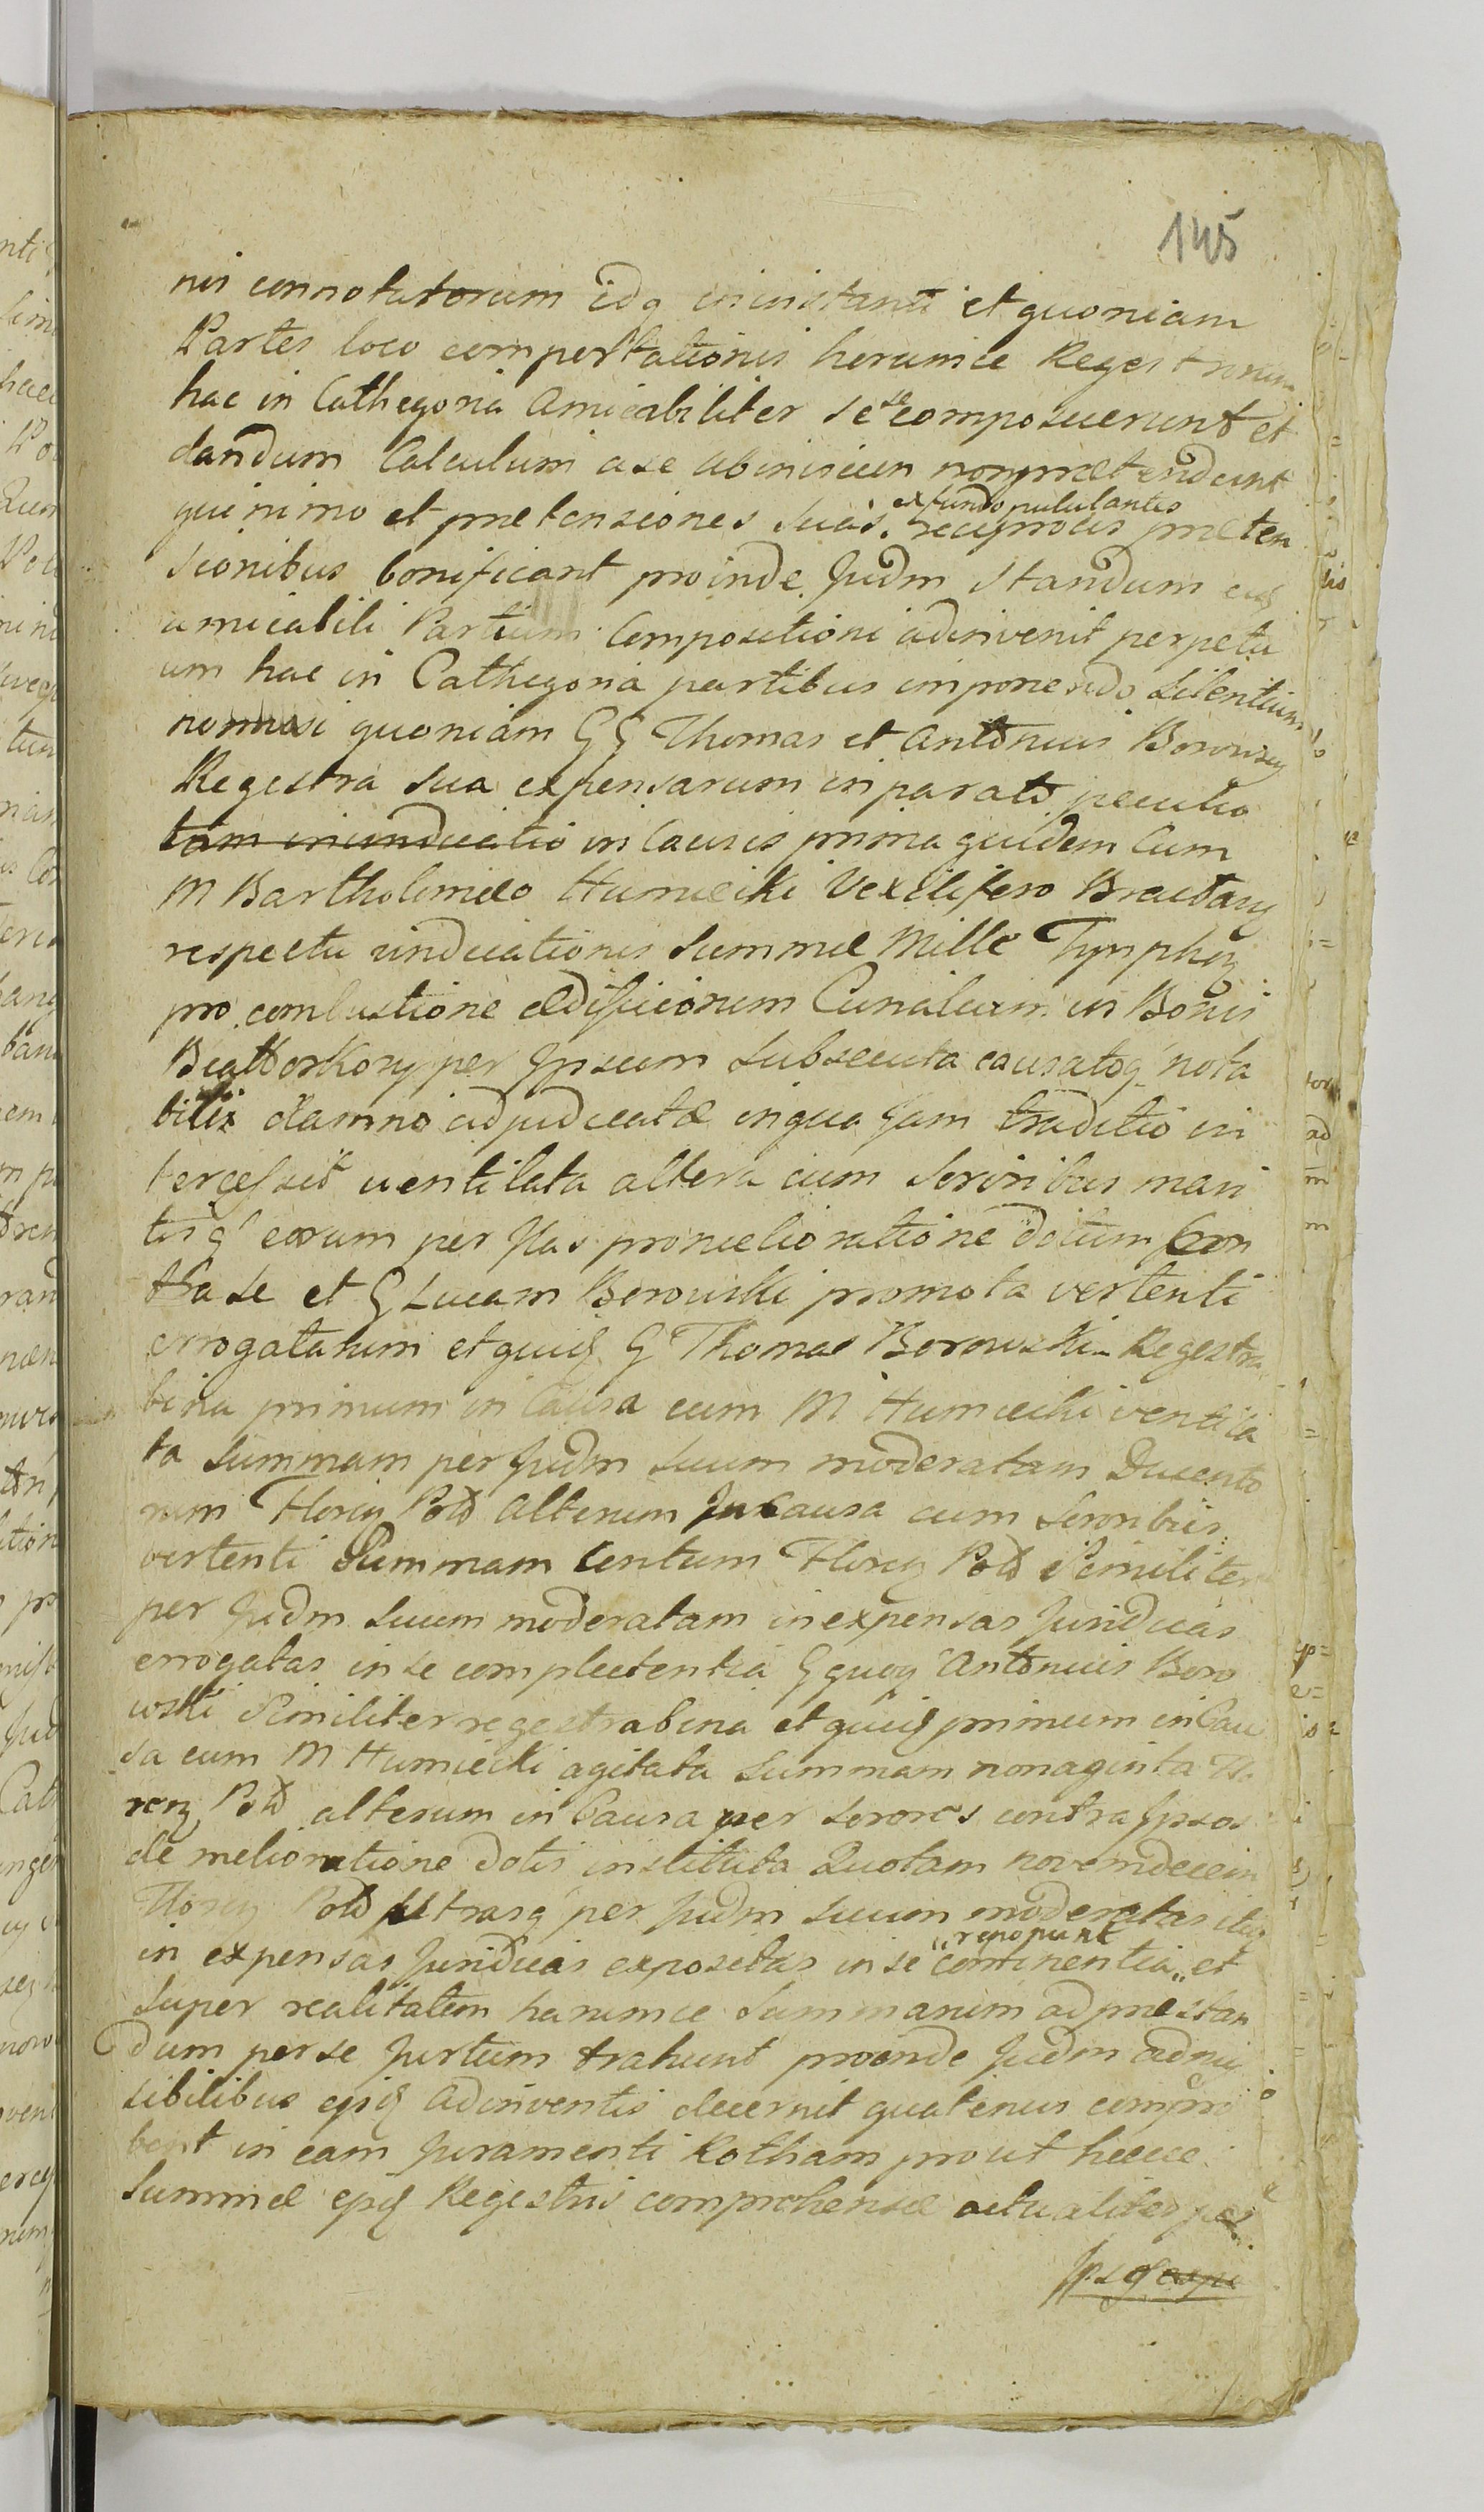 145
nis connotatorum idq in instanti et quoniam
Partes loco comportationis horumce Regestrorum
hac in Cathegoria amicabiliter sese composuerunt et
dandum Calculum a se abinvicem non prætendunt
quinimo et prætensiones suas ex fundo pululantes reciprocis præten
sionibus bonificant proinde Judm standum
amicabili Partium Compositioni adinvenit perpetu
um hac in Cathegoria partibus imponendo silentium
quoniam GG Thomas et Antonius Borowscy
Regestra sua expensarum in parata peculio
tam in Causis prima quidem Cum
M Bartholomeo Humiecki Vexilifero
respectu vindicationis summæ Mille Tymphoz
pro combustione ædificiorum in Bonis
per Ipsum subsecuta causatoq nota
bili damno adjudicatæ in qua jam traditio in
tercessit ventilata altera cum Sororibus mari
tisq earum per Ilas pro melioratione dotium Con
tra se et G Lucam Borowski promota vertenti
errogatarum et quidem G Thomas Borowski Regestra
bina primum in Causa cum M Humiecki ventila
ta Summam per Judm suum moderatam Ducento
rum Floreg Pold alterum in Causa cum Sororibus
vertenti Summam Centum Floreg Pold Similiter
per Judm suum moderatam in expensas Juridicas
errogatas in se complectentia G quoq Antonius Boro
wski Similiter regestra bina et quidem primum in Cau
sa cum M Humiecki agitata Summam nonaginta Flo
reg Pold alterum in Causa per Sorores contra Ipsos
de melioratione dotis instituta Quotam novemdecem
Floreg Pold utrasq per Judm suum moderatas
in expensas Juridicas expositas in se continentia reponunt et
super realitatem harumce Summarum ad præstan
dum per se Jurtum trahunt proinde Judm admis
sibilibus adinventis decernit quatenus compro
bent in eam Juramenti Rotham prout hæcce
Summæ Regestris comprehensæ actualiter per